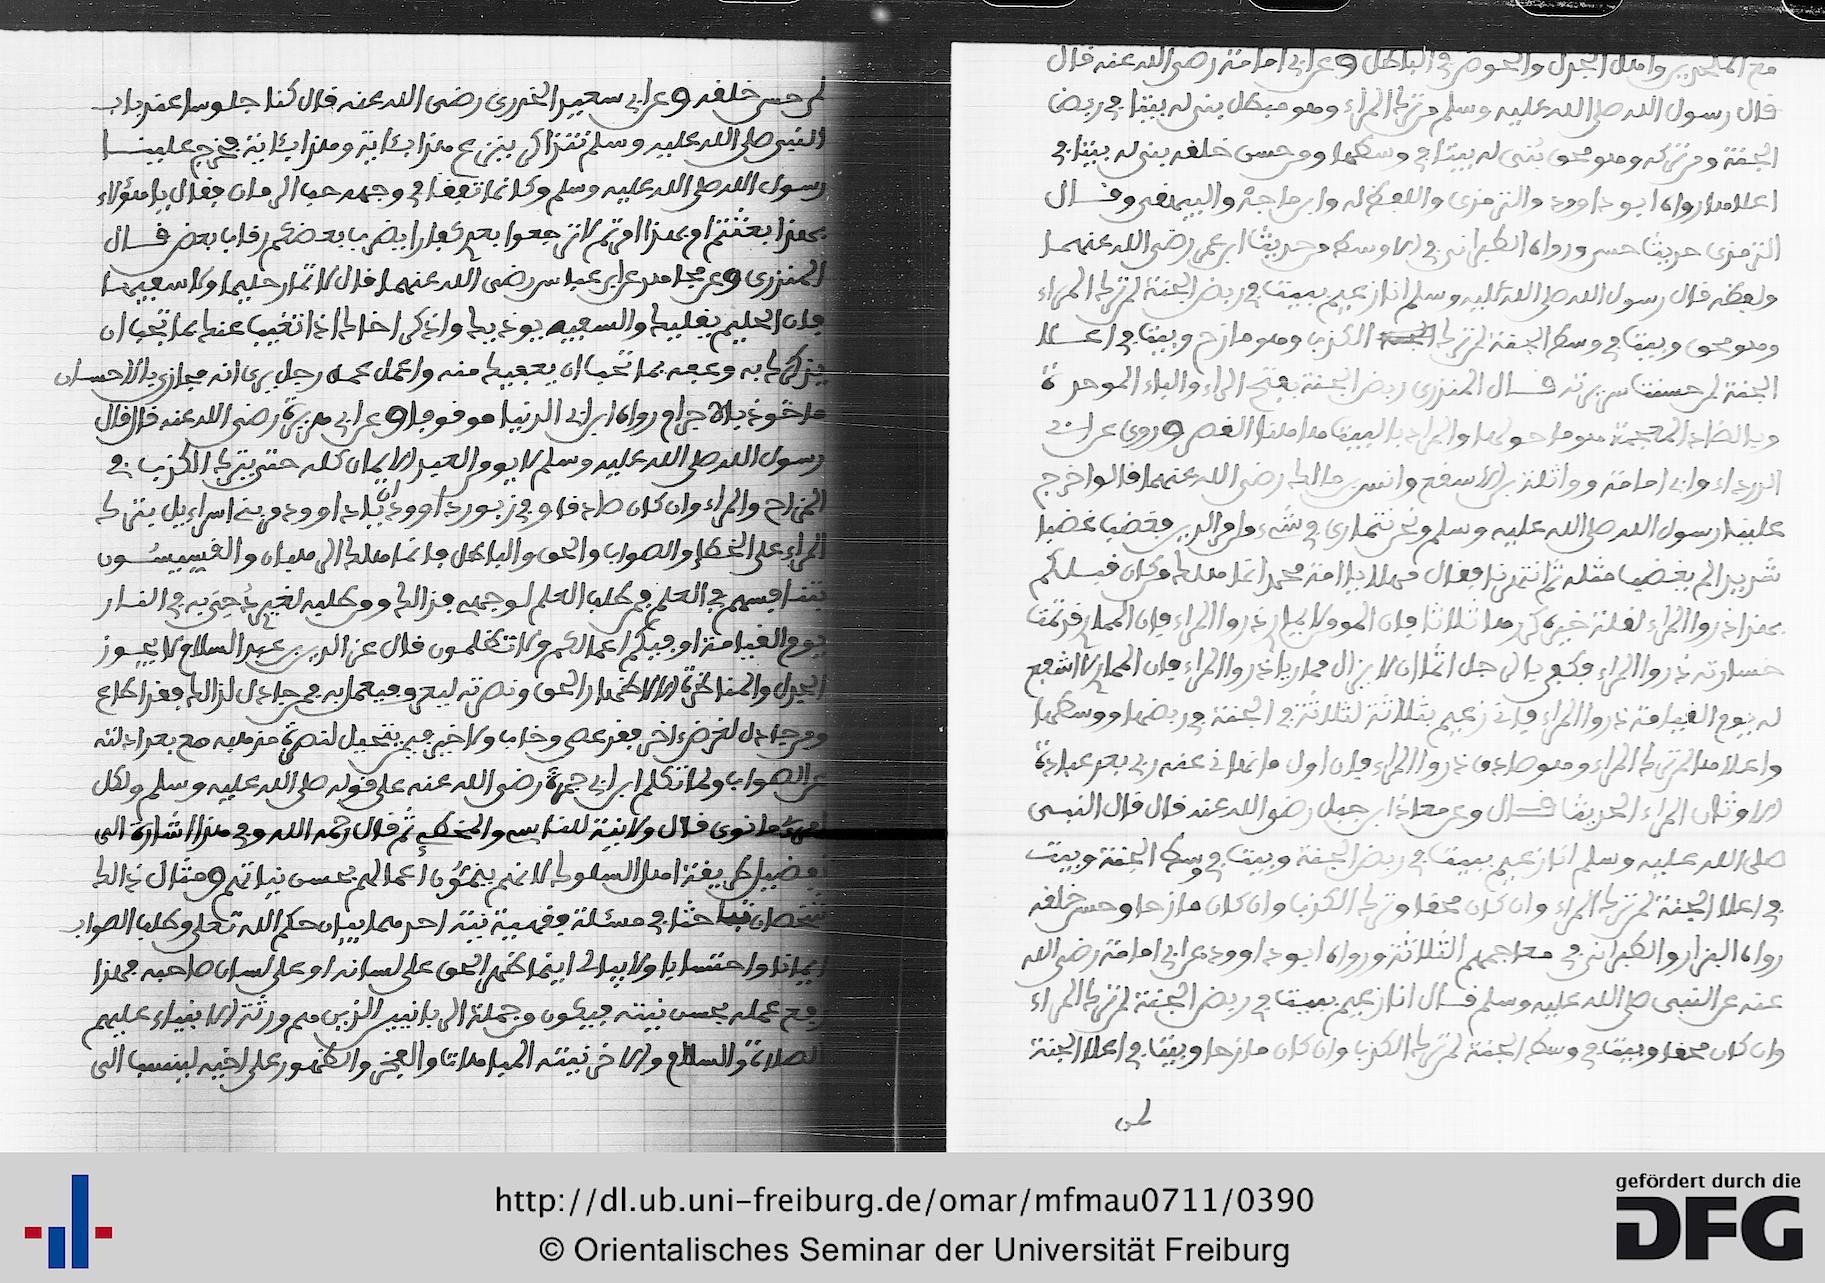 مع الملحدين وأهل الجدل والخوض في الباطل وعن أبي امامة رضي الله عنه قال
قال رسول الله صلى الله عليه وسلم من ترك المراء وهو مبطل بني له بيتا في ربض
الجنة ومن تركه وهو محق بني له بيتا في وسطها ومن حسن خلقه بني له بيتا في
اعلاها رواه ابو داوود والترمذي واللفظ له وابن ماجة والبيهقي وقال
الترمذي حديث حسن ورواه الطبراني في الاوسط من حديث ابن عمر رضي الله عنهما
ولفظه قال رسول الله صلى الله عليه وسلم انا زعيم ببيت في ربض الجنة لمن ترك المراء
وهو محق وبيت في وسط الجنة لمن ترك الكذب وهو مازح وبيت في اعلا
الجنة لمن حسنت سريرته قال المنذري ربض الجنة بفتح الراء والباء الموحدة
وبالضاد المعجمة هو ما حولها والمراد بالبيت هاهنا القصر وروي عن ابي
الدرداء وابي امامة وواثلة بن الاسقع وانس بن مالك رضي الله عنهم قالوا خرج
علينا رسول الله صلى الله عليه وسلم ونحن نتمارى في شيء من امر الدين فغضب غضبا
شديدا لم يغضب مثله ثم انتهرنا فقال مهلا يا امة محمد انما هلك من كان قبلكم
بهذا ذروا المراء لقلة خيره كررها ثلاثا فإن المومن لا يماري ذروا المراء فإن المماري قد تمت
خسارته ذروا المراء فكفى بالرجل اثما ان لا يزال مماريا ذروا المراء فإن المماري لا اشفع
له يوم القيامة ذروا المراء فإني زعيم بثلاثة لثلاثة في الجنة في ربضها ووسطها
واعلاها لمن ترك المراء وهو صادق ذروا المراء فإن اول ما نهاني عنه ربي بعد عبادة
الاوثان المراء الحديث قال وعن معاذ ابن جبل رضي الله عنه قال قال النبي
صلى الله عليه وسلم انا زعيم ببيت في ربض الجنة وبيت في وسط الجنة وبيت
في اعلا الجنة لمن ترك المراء وان كان محقا وترك الكذب وان كان مازحا وحسن خلقه
رواه البزار والطبراني في معاجمهم الثلاثة ورواه ابو داوود عن ابي امامة رضي الله
عنه عن النبي صلى الله عليه وسلم قال انا زعيم ببيت في ربض الجنة لمن ترك المراء
وان كان محقا وبيت في وسط الجنة لمن ترك الكذب وان كان مازحا وبيت في اعلا الجنة
لمن
لمن حسن خلقه وعن ابي سعيد الخدري رضي الله عنه قال كنا جلوسا عند باب
النبي صلى الله عليه وسلم نتذاكر ينزع هذا بئاية وهذا بئاية فخرج علينا
رسول الله صلى الله عليه وسلم وكانما تفقأ في وجهه حب الرمان فقال يا هؤلاء
بهذا بعثتم ام بهذا امرتم لا ترجعوا بعدي كفارا يضرب بعضكم رقاب بعض قال
المنذري وعن مجاهد عن ابن عباس رضي الله عنهما قال لا تمار حليما ولا سفيها
فإن الحليم يقليك والسفيه يوذيك واذكر اخاك اذا تغيب عنك بما تحب ان
يذكرك به وعفه بما تحب ان يعفيك منه واعمل عمل رجل يرى انه مجازى بالاحسان
ماخوذ بالاجرام رواه ابن ابي الدنيا موقوفا وعن ابي هريرة رضي الله عنه قال قال
رسول الله صلى الله عليه وسلم لا يومن العبد الايمان كله حتى يترك الكذب في
المزاح والمراء وان كان صادقا وفي زبور داوود يا داوود مر بني اسراءيل بترك
المراء على الخطإ والصواب والحق والباطل فإنما هلك الرهبان والقسيسون
بتنافسهم في العلم فمن طلب العلم لوجهه فذالك ومن طلبه لغيره رمي به في النار
يوم القيامة اوفيكم اعمالكم ولا تظلمون قال عز الدين بن عبد السلام لا يجوز
الجدل والمناظرة الا لاظهار الحق ونصرته ليعرف ويعمل به فمن جادل لذالك فقد اطاع
ومن جادل لغرض اخر فقد عصى وخاب ولا خير فيمن يتحيل لنصرة مذهبه مع بعد ادلته
عن الصواب ولما تكلم ابن ابي جمرة رضي الله عنه على قوله صلى الله عليه وسلم ولكل
امرئ ما نوى قال ولا نية للناسي والمخطئ ثم قال رحمه الله وفي هذا اشارة الى
تفضيل طريقة اهل السلوك لانهم ينمون اعمالهم بحسن نياتهم ومثال ذالك
شخصان تباحثا في مسئلة فقهية نية احدهما بيان حكم الله تعلى وطلب الصواب
ايمانا واحتسابا ولا يبالي اينما ظهر الحق على لسانه او على لسان صاحبه فهذا
رفع عمله بحسن نيته فيكون من جملة الربانيين الذين هم ورثة الانبياء عليهم
الصلاة والسلام والاخر نيته المباهات والفخر والظهور على اخيه لينسب الى
http://dl.ub.uni-freiburg.de/omar/mfmau0711/0390
© Orientalisches Seminar der Universität Freiburg
gefördert durch die
DFG